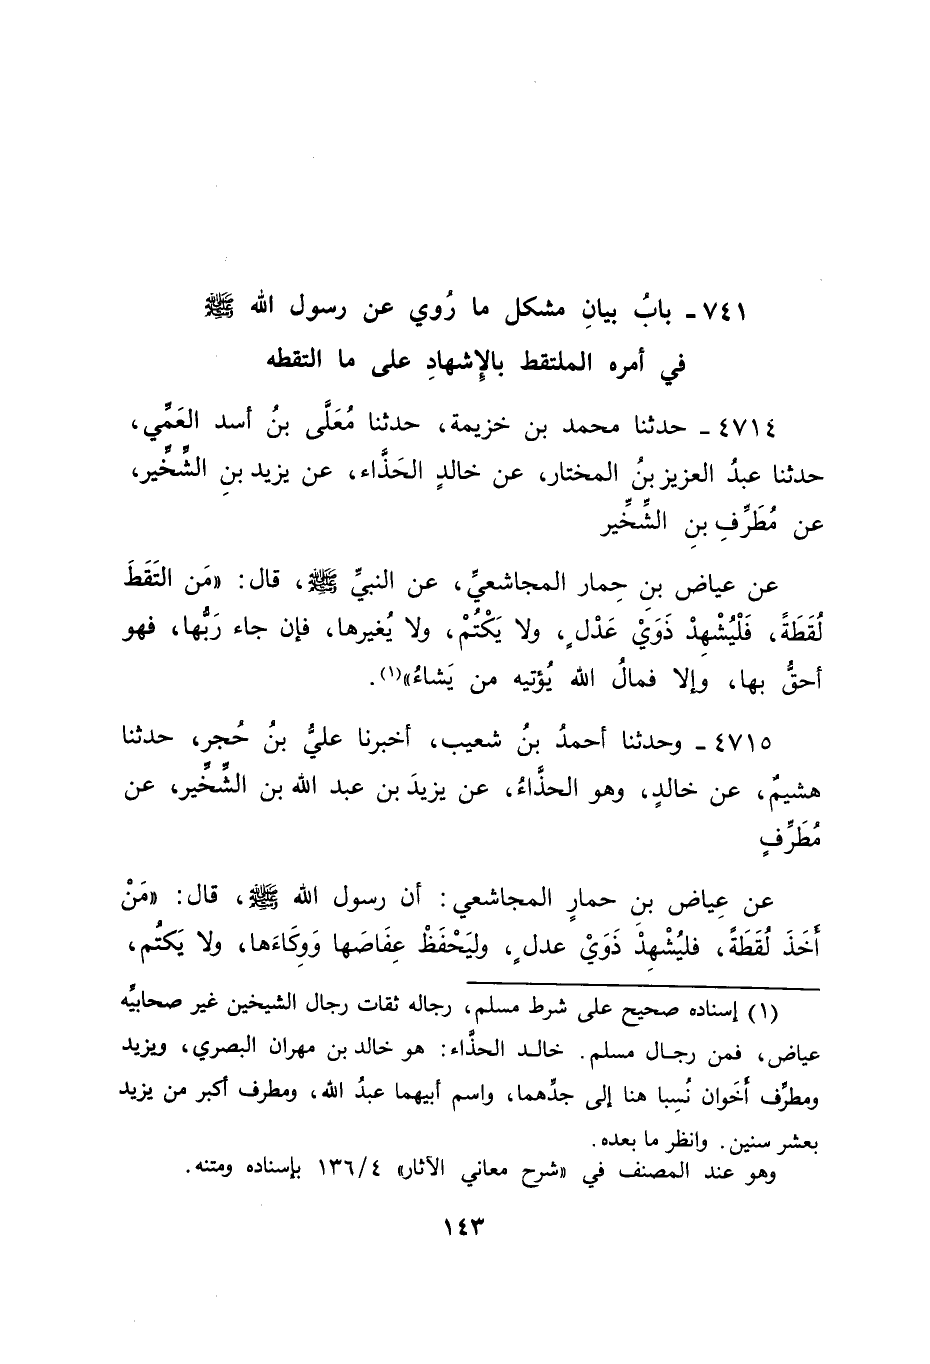 ٧٤١ ـ بابُ بيانِ مشكل ما رُوي عن رسول الله ﷺ
في أمره الملتقط بالإِشهادِ على ما التقطه
٤٧١٤ ـ حدثنا محمد بن خزيمة، حدثنا مُعَلَّى بنُ أسد العَمِّي،
حدثنا عبدُ العزيز بنُ المختار، عن خالدٍ الحَذَّاء، عن يزيد بنِ الشِّخِّير،
عن مُطَرِّفِ بنِ الشِّخِّير
عن عياض بنِ حِمار المجاشعيِّ، عن النبيِّ ﷺ، قال: «مَن التَقَطَ
لُقَطَةً، فَلْيُشْهِدْ ذَوَيْ عَدْلٍ، ولا يَكْتُمْ، ولا يُغيرها، فإن جاء رَبُّها، فهو
أحقُّ بها، وإلا فمالُ الله يُؤتيه من يَشاءُ»(١).
٤٧١٥ ـ وحدثنا أحمدُ بنُ شعيب، أخبرنا عليُّ بنُ حُجرٍ، حدثنا
هشيمٌ، عن خالدٍ، وهو الحذَّاءُ، عن يزيدَ بن عبد الله بن الشِّخِّير، عن
مُطَرِّفٍ
عن عِياض بنِ حمارٍ المجاشعي: أن رسول الله ﷺ، قال: «مَنْ
أَخَذَ لُقَطَةً، فليُشْهِدْ ذَوَيْ عدلٍ، وليَحْفَظْ عِفَاصَها وَوِكَاءَها، ولا يَكتُم،
(١) إسناده صحيح على شرط مسلم، رجاله ثقات رجال الشيخين غير صحابيِّه
عياض، فمن رجال مسلم. خالد الحذَّاء: هو خالد بن مهران البصري، ويزيد
ومطرِّف أَخَوان نُسِبا هنا إلى جدِّهما، واسم أبيهما عبدُ الله، ومطرف أكبر من يزيد
بعشر سنين. وانظر ما بعده.
وهو عند المصنف في «شرح معاني الآثار» ١٣٦/٤ بإسناده ومتنه.
١٤٣